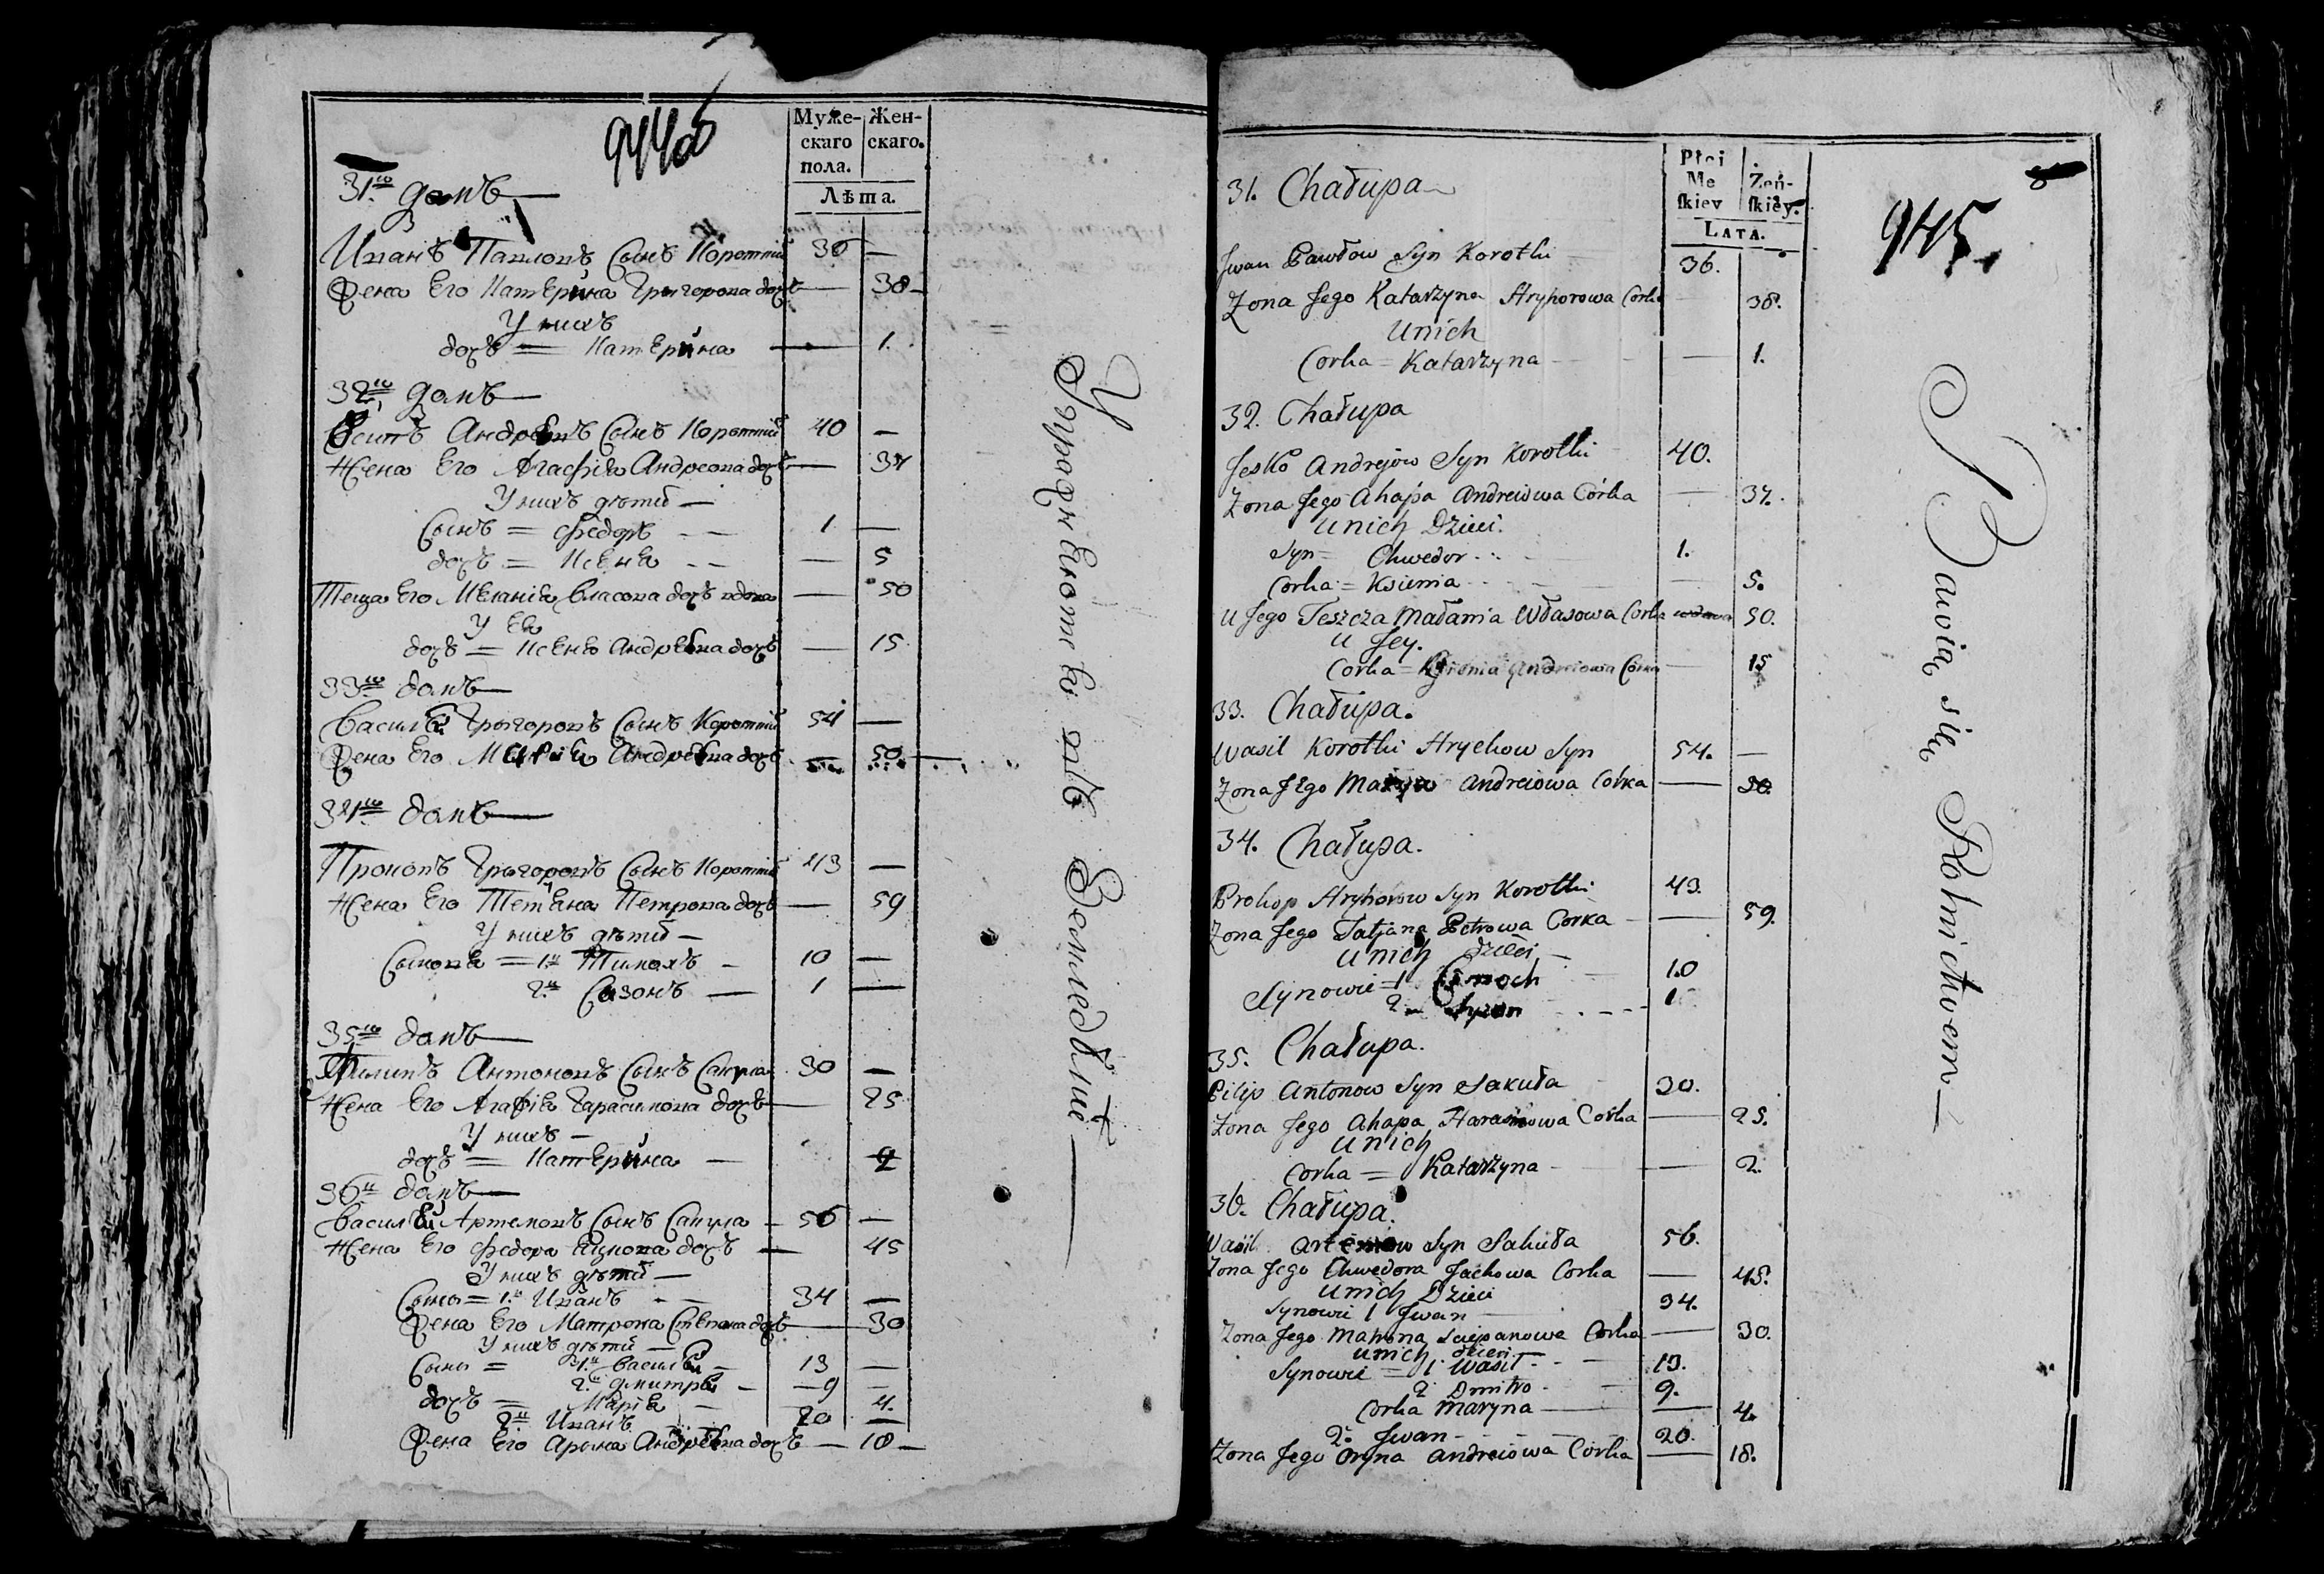 944об
Муже-
скаго
пола.
Жен-
скаго.
Лѣта.
31го домъ
Иванъ Павловъ Сынъ Короткий 36 —
Жена Его Катерина Григорова дочь — 38
У нихъ
дочь = Катерина — 1.
32го домъ
Есипъ Андреевъ Сынъ Короткий 40 —
Жена Его Агафия Андреова дочь — 37
У нихъ дѣтей
Сынъ = Федоръ 1 —
дочь = Ксеня — 5
Теща Его Мелания Власова дочь вдова — 50
У Ея
дочь = Ксеня Андреева дочь — 15
33го домъ
Василей Григоровъ Сынъ Короткий 54 —
Жена Его Мария Андреева дочь — 50
34го домъ
Прокопъ Григоровъ Сынъ Короткий 43 —
Жена Его Тетяна Петрова дочь — 59
У нихъ дѣтей —
Сынова = 1й Тимохъ 10 —
2й Сазонъ 1 —
35го домъ
Филипъ Антоновъ Сынъ Сакула 30 —
Жена Его Агафия Гарасимова дочь — 25
У нихъ —
дочь = Катерина — 2
36й домъ
Василей Артемовъ Сынъ Сакула 56 —
Жена Его Федора Яцкова дочь — 45
У нихъ дѣтей —
Сыны = 1й Иванъ 34 —
Жена Его Матрона Степанова дочь — 30
У нихъ дѣтей
Сыны = 1й Василей 13 —
2й Дмитрей — 9 —
дочь = Мария — 4.
2й Иванъ 20 —
Жена Его Арына Андреева дочь — 18 —
Упражняютъся въ Земледѣлие
Płci
Mę
skiey
Żeń-
skiey.
LATA.
945.
31. Chałupa
Jwan Pawłow Syn Korotki 36.
Zona Jego Katarzyna Hryhorowa Corka 38.
U nich
Corka = Katarzyna — 1.
32. Chałupa
Jesko Andrejow Syn Korotki 40.
Zona Jego Ahapa Andreiowa Córka — 37.
U nich Dzieci.
Syn = Chwedor 1.
Corka = Ksienia — 5.
U Jego Teszcza Małania Własowa Corka wdowa 50.
U Jey.
Corka = Ksienia Andreiowa Corka — 15
33. Chałupa.
Wasil Korotki Hrychow Syn 54. —
Zona Jego Marya Andreiowa Corka — 50.
34. Chałupa.
Prokop Hryhorow Syn Korotki 43.
Zona Jego Tatjana Petrowa Corka — 59.
U nich dzieci
Synowie = 1 Cimoch 10
2 Syzon 1
35. Chałupa.
Pilip Antonow Syn Sakuła 30.
Zona Jego Ahapa Harasimowa Corka — 25.
U nich
Corka = Katarzyna — 2.
36. Chałupa.
Wasil Artemow Syn Sakuła 56.
Zona Jego Chwedora Jackowa Corka — 45.
U nich Dzieci
Synowie 1 Jwan 34.
Zona Jego Matrona Sciepanowa Corka — 30.
U nich dzieci
Synowie = 1 Wasil 13.
2 Dmitro 9.
Corka Maryna — 4.
2. Jwan 20.
Zona Jego Oryna Andreiowa Corka — 18.
Bawią się Rolnictwem